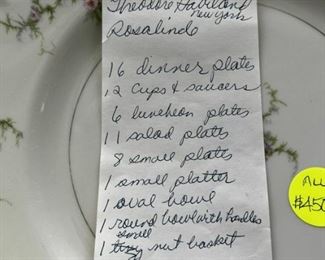 Theodore Haviland
New York
Rosalinde
16 dinner plates
12 cups & saucers
6 luncheon plates
11 salad plates
8 small plates
1 small platter
1 oval bowl
1 round bowl with handles
small
1 nut basket
ALL
$450